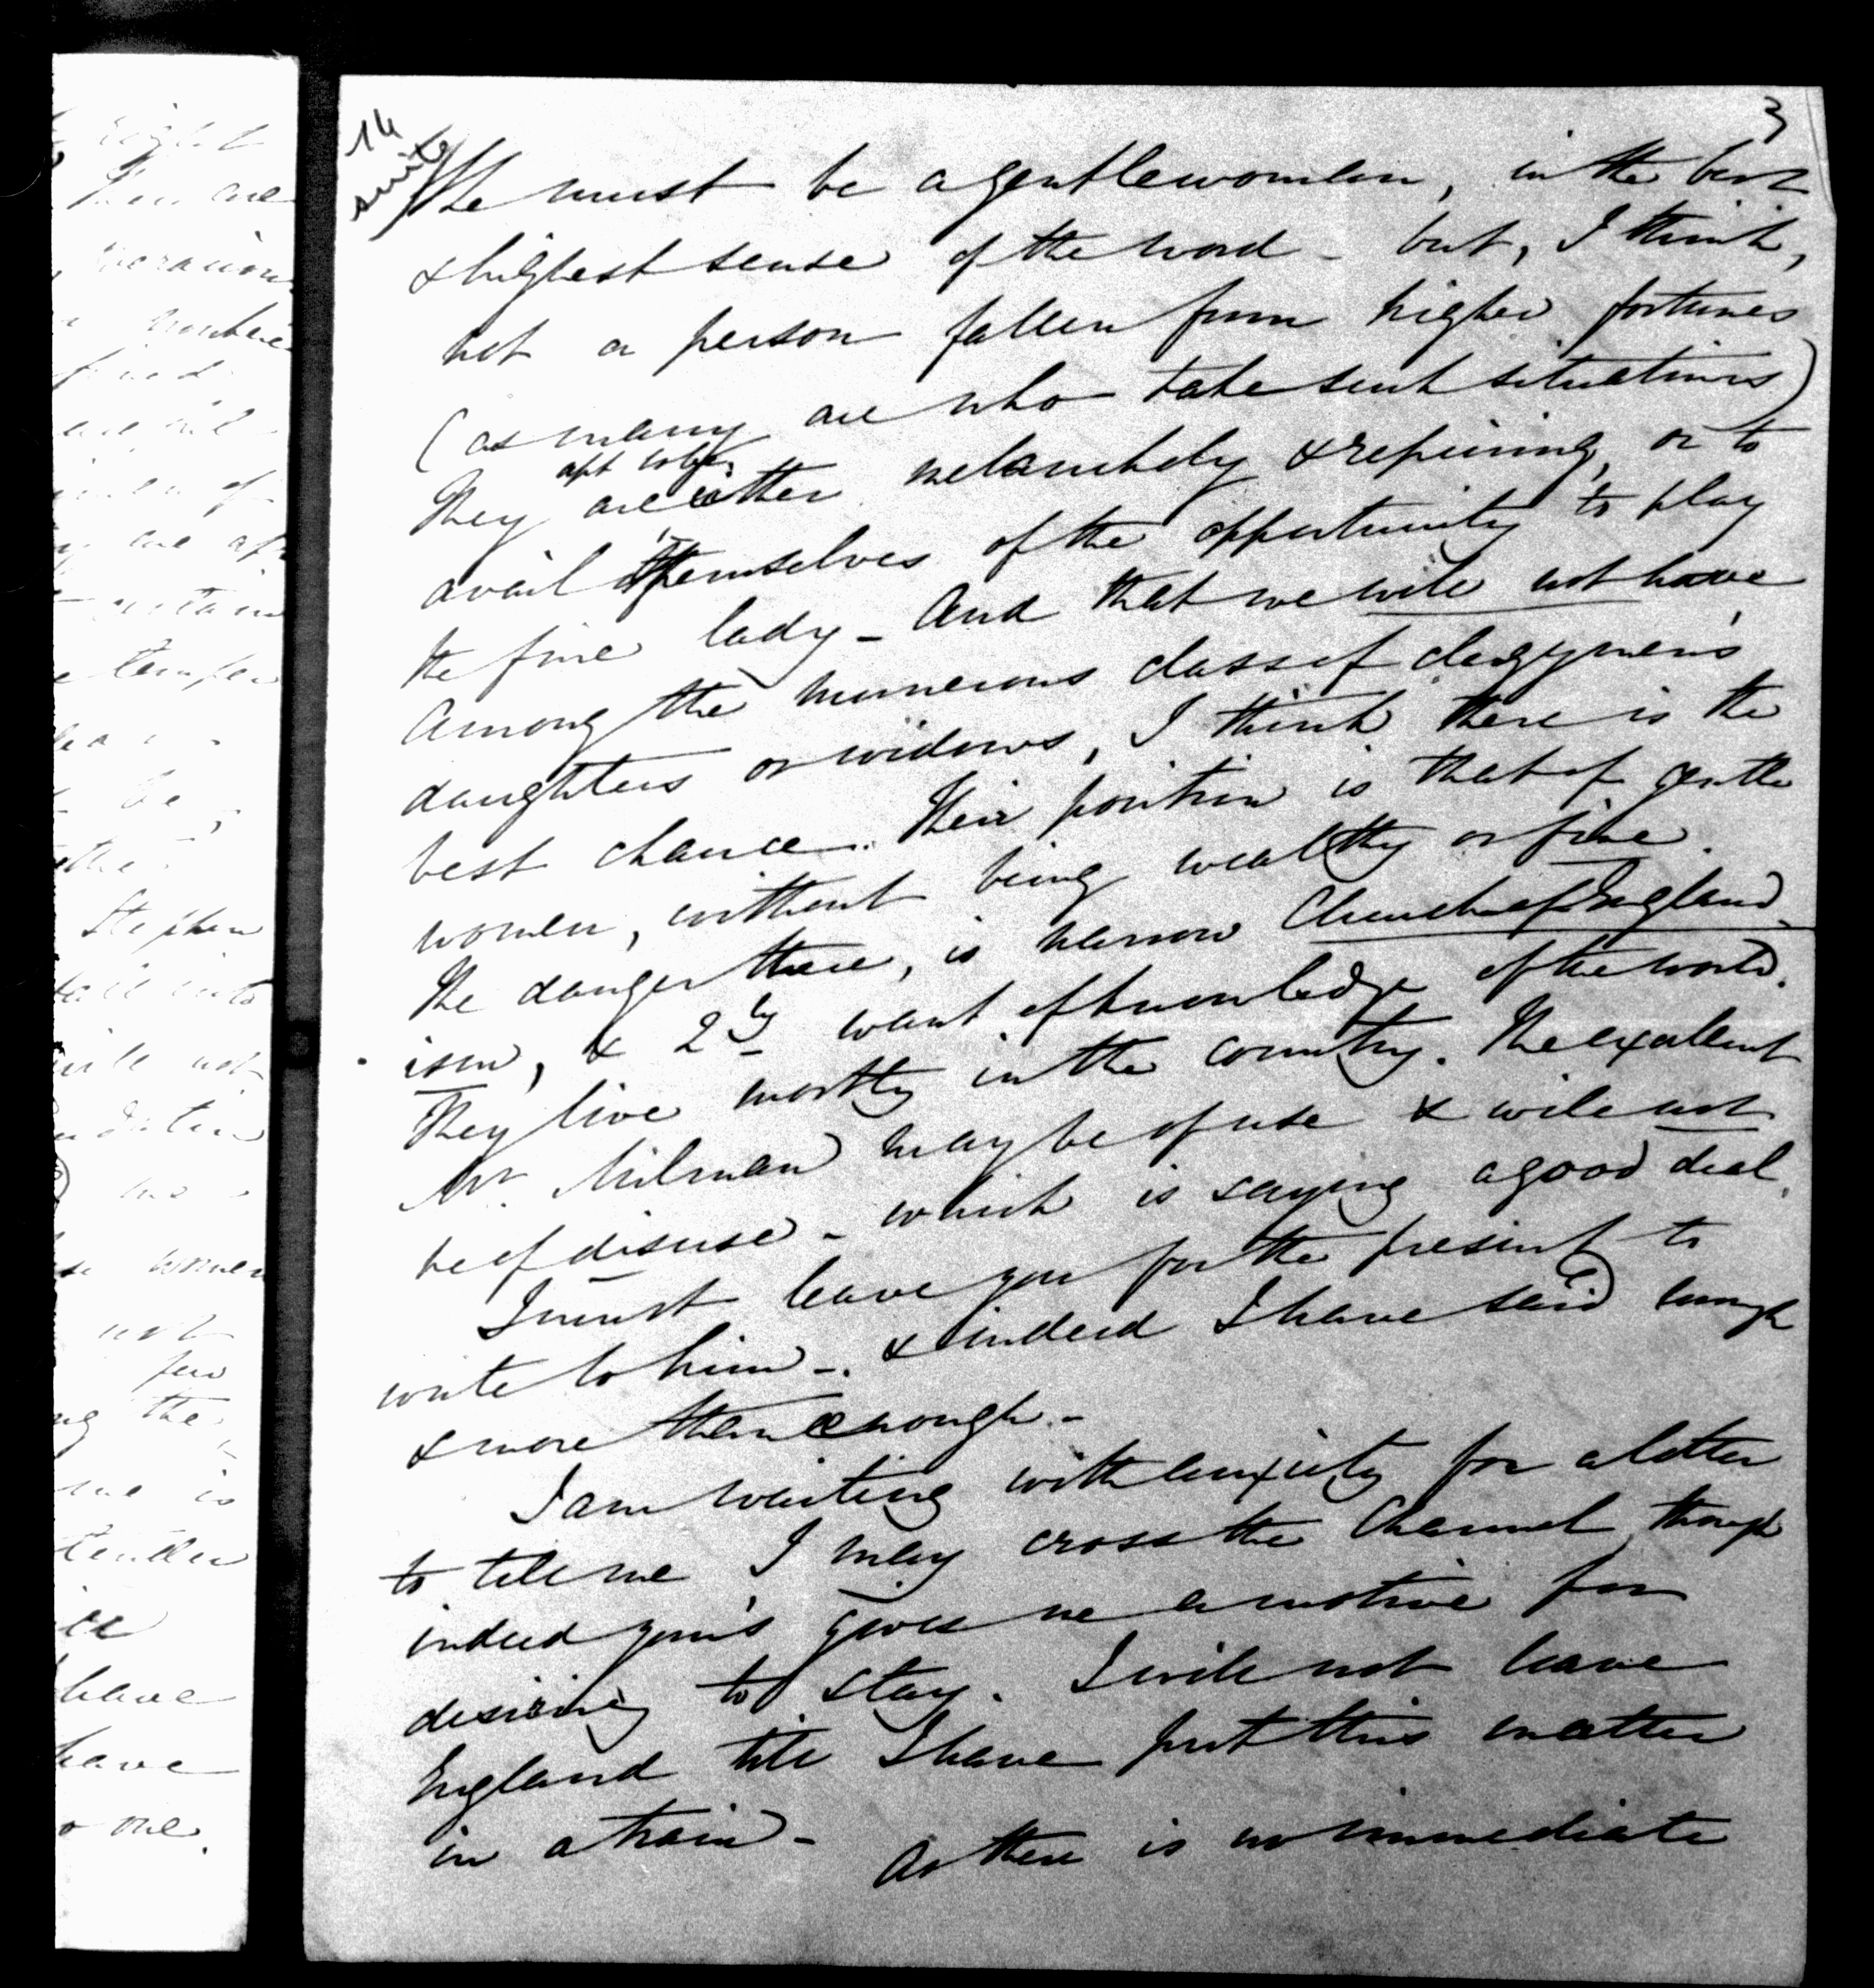 right
There are
Stephen
will not
women
not
few
the
is
have
have
one.
14
suite
3
She must be a gentlewoman, in the best
& highest sense of the word - but, I think,
not a person fallen from higher fortunes
(as many are who take such situations)
They are apt to be either melancholy & repining, or to
avail themselves of the opportunity to play
the fine lady - And that we will not have
Among the numerous class of clergymen's
daughters or widows, I think there is the
best chance. Their position is that of gentle
women, without being wealthy or fine.
The danger there, is narrow Church of England-
ism, & 2ly want of knowledge of the world.
They live mostly in the country. The excellent
Mr. Milman may be of use & will not
be of disuse - which is saying a good deal.
I must leave you for the present to
write to him -. & indeed I have said enough
& more than enough. -
I am waiting with anxiety for a letter
to tell me I may cross the Channel, though
indeed your's gives me a motive for
desiring to stay. I will not leave
England till I have put this matter
in a train - As there is no immediate